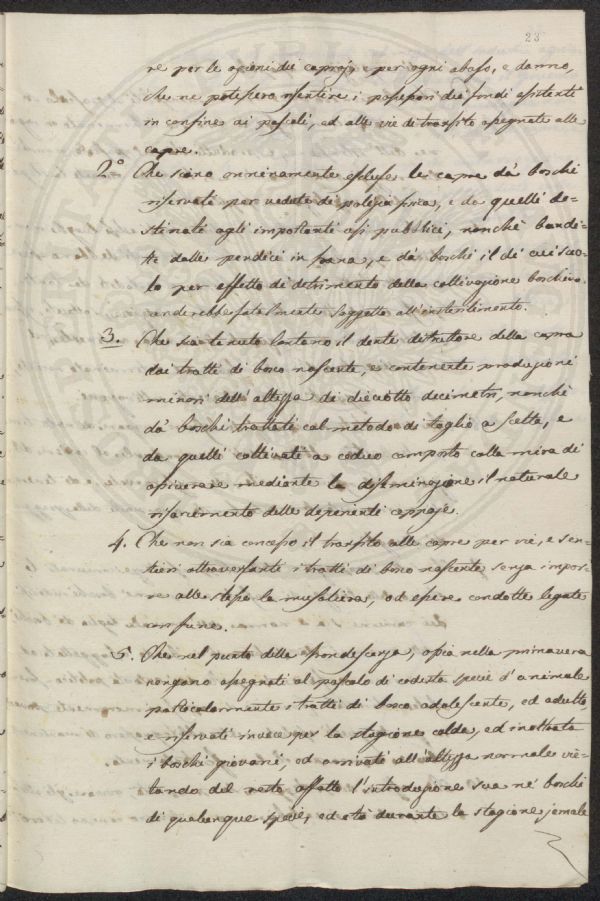 23
re per le azioni dei capraj, e per ogni abuso, e danno,
che ne potessero risentire i possessori dei fondi esistenti
in confine ai pascoli, ed alle vie di transito assegnate alle
capre.
2° Che siano onninamente escluse le capre dà boschi
riservati per vedute di polizia fisica, e da quelli de-
stinati agli importanti usi pubblici, nonchè bandi-
te dalle pendici in frana, e dà boschi il di cui suo-
lo per effetto di detrimento della coltivazione boschiva
anderebbe fatalmente soggetto all'insterilimento.
3. Che sia tenuto lontano il dente distruttore della capra
dai tratti di bosco nascente, e contenente produzioni
minori dell'altezza di dieciotto decimetri, nonchè
dà boschi trattati col metodo di taglio a scelta, e
da quelli coltivati a ceduo composto colla mira di
assicurare mediante la disseminazione il naturale
rifacimento delle deperenti ceppaje.
4. Che non sia concesso il transito alle capre per vie, e sen-
tieri attraversanti i tratti di bosco nascente senza impor-
re alle stesse la museliera, od essere condotte legate
con fune.
5. Che nel punto della frondescenza, ossia nella primavera
vengano assegnati al pascolo di codesta specie d'animale
particolarmente i tratti di bosco adolescente, ed adulto
e riservati invece per la stagione calda, ed inoltrata
i boschi giovani, od arrivati all'altezza normale vie-
tando del resto affatto l'introduzione sua nè boschi
di qualunque specie, ed età durante la stagione jemale